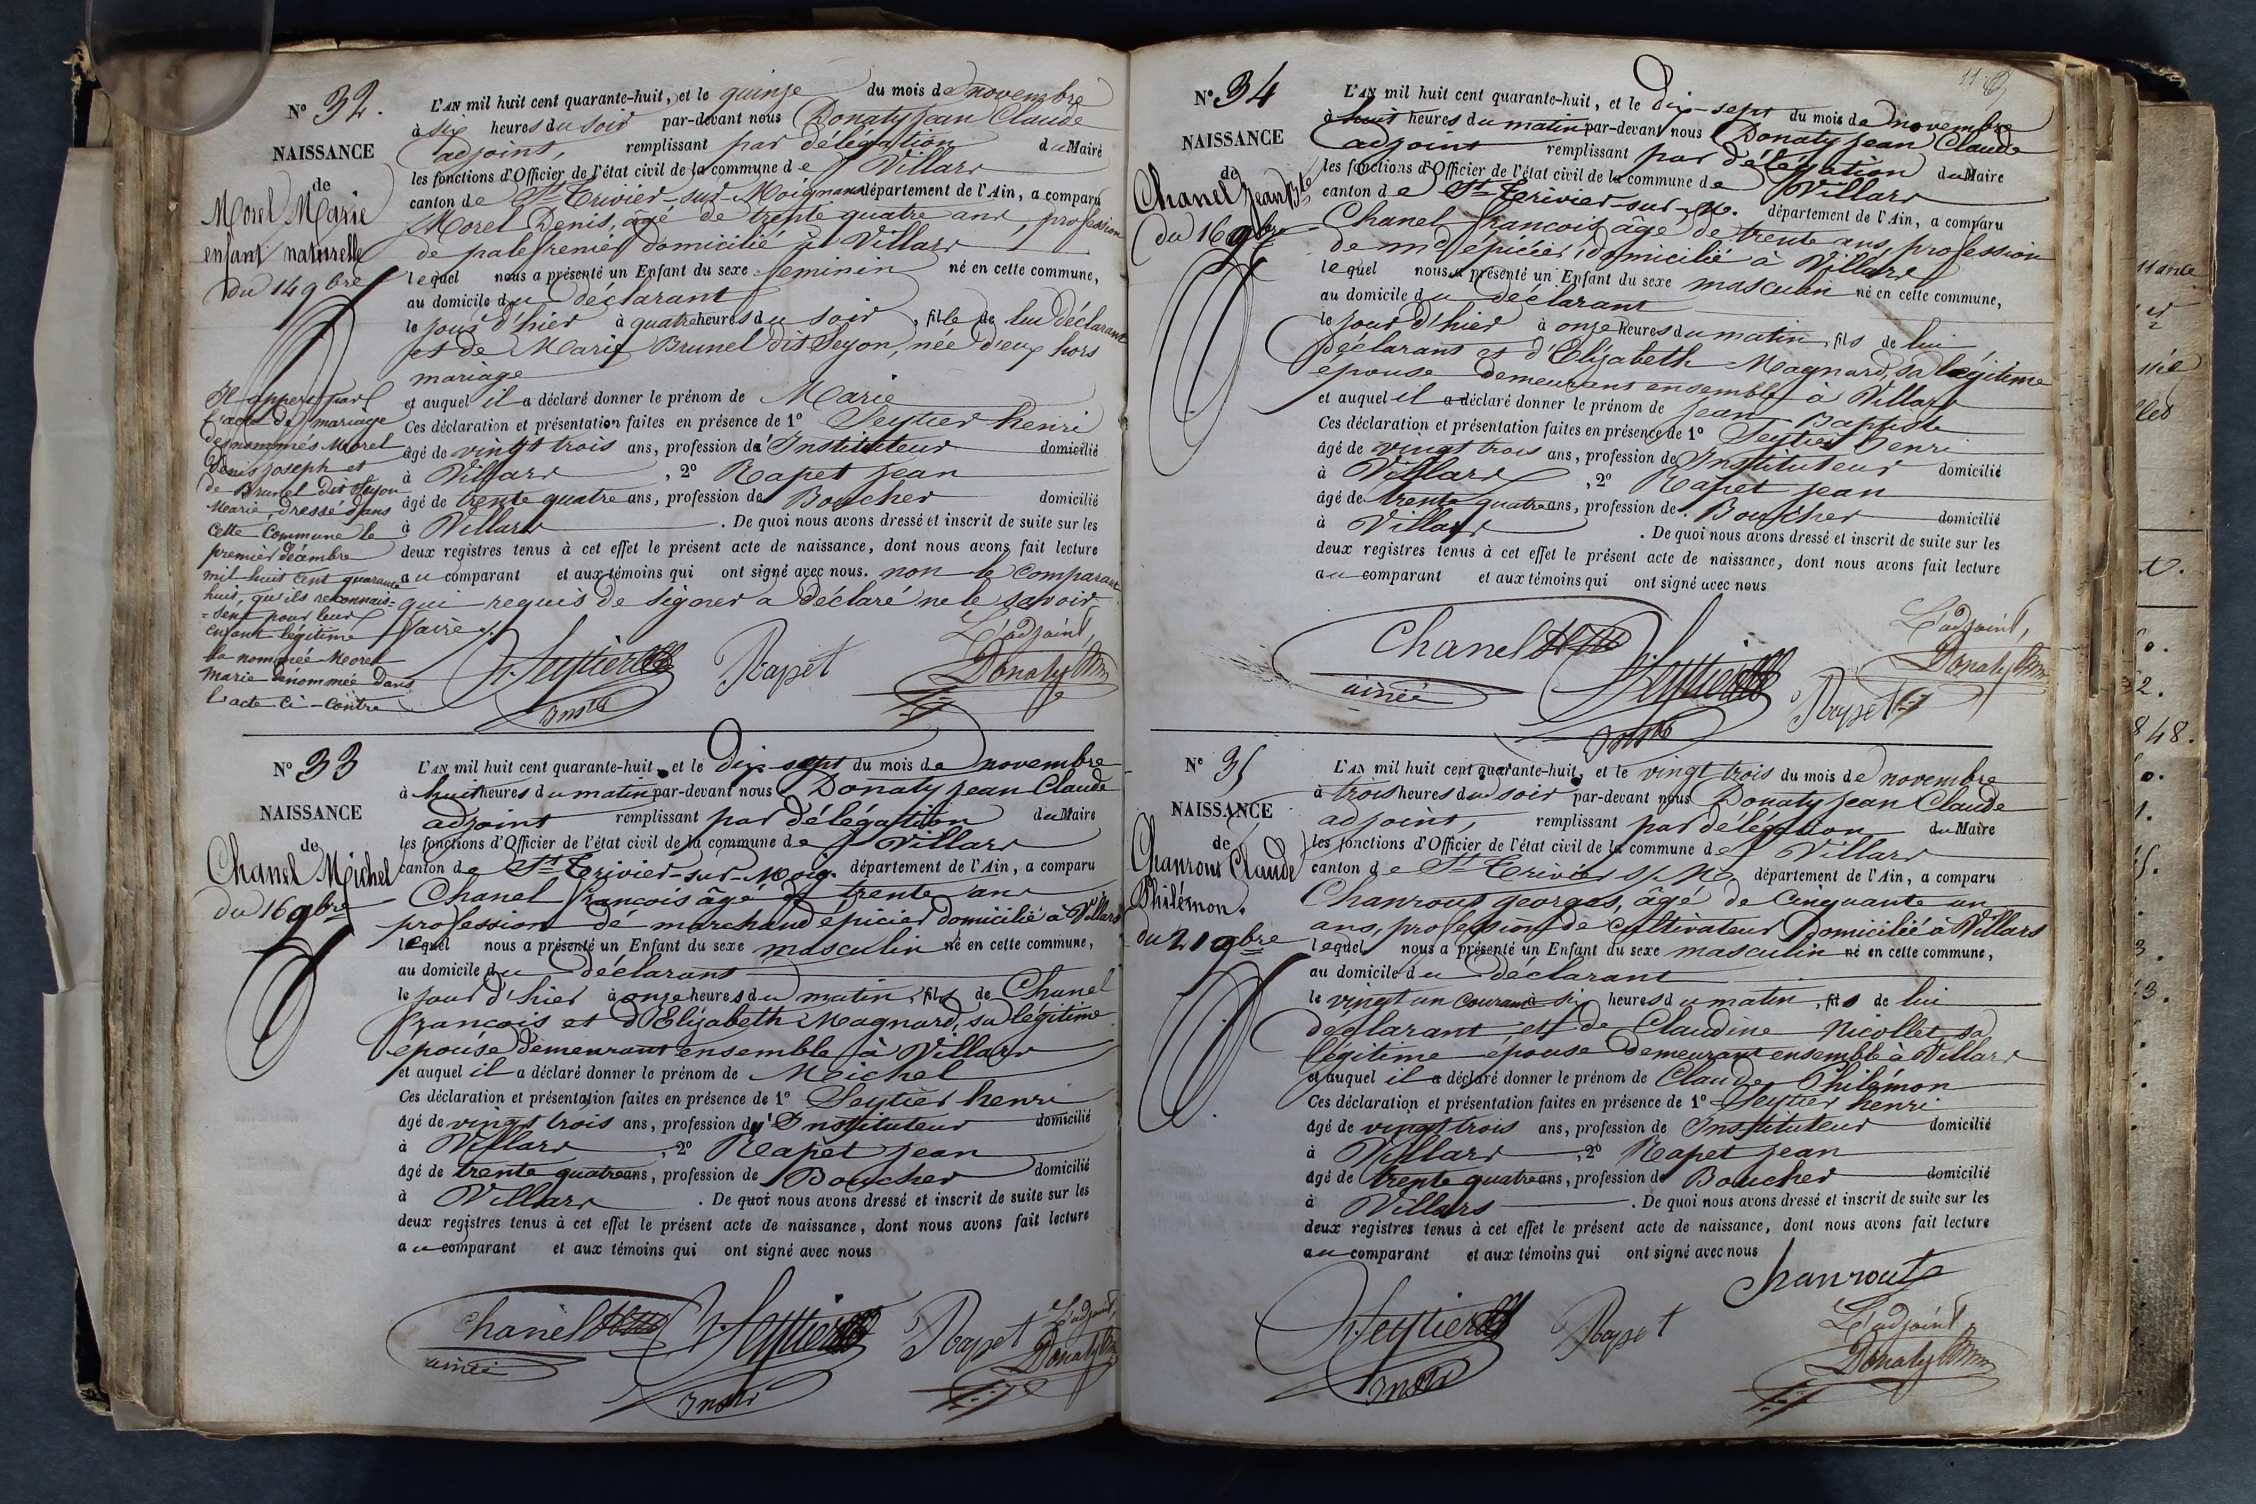 N° 32.
NAISSANCE
de
Morel Marie
enfant naturelle
du 14 9bre
Il appert par
l'acte de mariage
des nommés Morel
Denis Joseph et
de Brunel dit Seyon
Marie, dressé dans
cette Commune le
premier décembre
mil huit cent quarante
huit, qu'ils reconnais=
=sent pour leur
enfant légitime
la nommée Morel
Marie dénommée dans
l'acte ci-contre
L'AN mil huit cent quarante-huit, et le quinze du mois de novembre
à six heures du soir par-devant nous Donaty jean Claude
adjoint, remplissant par délégation du Maire
les fonctions d'Officier de l'état civil de la commune de Villars
canton de St Trivier-sur-Moignans département de l'Ain, a comparu
Morel Denis, âgé de trente quatre ans, profession
de palefrenier domicilié à Villars
lequel nous a présenté un Enfant du sexe feminin né en cette commune,
au domicile du déclarant
le jour d'hier à quatre heures du soir, fille de lui déclarant
et de Marie Brunel dit Seyon, née d'eux hors
mariage
et auquel il a déclaré donner le prénom de Marie
Ces déclaration et présentation faites en présence de 1° Seytier henri
âgé de vingt trois ans, profession d'Instituteur domicilié
à Villars, 2° Rapet jean
âgé de trente quatre ans, profession de Boucher domicilié
à Villars. De quoi nous avons dressé et inscrit de suite sur les
deux registres tenus à cet effet le présent acte de naissance, dont nous avons fait lecture
au comparant et aux témoins qui ont signé avec nous. non le comparant
qui requis de signer a déclaré ne le savoir
faire.
h. Seytier
Inst
Rapet
L'adjoint
Donaty
N° 33
NAISSANCE
de
Chanel Michel
du 16 9bre
L'AN mil huit cent quarante-huit, et le dix-sept du mois de novembre
à huit heures du matin par-devant nous Donaty jean Claude
adjoint remplissant par délégation du Maire
les fonctions d'Officier de l'état civil de la commune de Villars
canton de St Trivier-sur-Moig. département de l'Ain, a comparu
Chanel françois âgé de trente ans
profession de marchand épicier domicilié à Villars
lequel nous a présenté un Enfant du sexe masculin né en cette commune,
au domicile du déclarant
le jour d'hier à onze heures du matin, fils de Chanel
françois et d'Elizabeth Magnard, sa légitime
épouse demeurant ensemble à Villars
et auquel il a déclaré donner le prénom de Michel
Ces déclaration et présentation faites en présence de 1° Seytier henri
âgé de vingt trois ans, profession d'Instituteur domicilié
à Villars, 2° Rapet jean
âgé de trente quatre ans, profession de Boucher domicilié
à Villars. De quoi nous avons dressé et inscrit de suite sur les
deux registres tenus à cet effet le présent acte de naissance, dont nous avons fait lecture
au comparant et aux témoins qui ont signé avec nous
Chanel
ainé
h. Seytier
Inst
Rapet
L'adjoint,
Donaty
N° 34
NAISSANCE
de
Chanel Jean Bte
du 16 9bre
L'AN mil huit cent quarante-huit, et le dix-sept du mois de novembre
à huit heures du matin par-devant nous Donaty jean Claude
adjoint remplissant par délégation du Maire
les fonctions d'Officier de l'état civil de la commune de Villars
canton de St Trivier-sur-M. département de l'Ain, a comparu
Chanel françois âgé de trente ans, profession
de md épicier, domicilié à Villars
lequel nous a présenté un Enfant du sexe masculin né en cette commune,
au domicile du déclarant
le jour d'hier à onze heures du matin, fils de lui
déclarant et d'Elizabeth Magnard, sa légitime
épouse demeurant ensemble à Villars
et auquel il a déclaré donner le prénom de jean Baptiste
Ces déclaration et présentation faites en présence de 1° Seytier henri
âgé de vingt trois ans, profession de Instituteur domicilié
à Villars, 2° Rapet jean
âgé de trente quatre ans, profession de Boucher domicilié
à Villars. De quoi nous avons dressé et inscrit de suite sur les
deux registres tenus à cet effet le présent acte de naissance, dont nous avons fait lecture
au comparant et aux témoins qui ont signé avec nous
Chanel
ainé
h. Seytier
Inst
Rapet
L'adjoint,
Donaty
N° 35
NAISSANCE
de
Chanrout Claude
Philémon.
du 21 9bre
L'AN mil huit cent quarante-huit, et le vingt trois du mois de novembre
à trois heures du soir par-devant nous Donaty jean Claude
adjoint, remplissant par délégation du Maire
les fonctions d'Officier de l'état civil de la commune de Villars
canton de St Trivier s/ M. département de l'Ain, a comparu
Chanrout georges, âgé de cinquante un
ans, profession de cultivateur domicilié à Villars
lequel nous a présenté un Enfant du sexe masculin né en cette commune,
au domicile du déclarant
le vingt un courant à six heures du matin, fils de lui
déclarant et de Claudine Nicollet, sa
légitime épouse demeurant ensemble à Villars
et auquel il a déclaré donner le prénom de Claude Philémon
Ces déclaration et présentation faites en présence de 1° Seytier henri
âgé de vingt trois ans, profession de Instituteur domicilié
à Villars, 2° Rapet jean
âgé de trente quatre ans, profession de Boucher domicilié
à Villars. De quoi nous avons dressé et inscrit de suite sur les
deux registres tenus à cet effet le présent acte de naissance, dont nous avons fait lecture
au comparant et aux témoins qui ont signé avec nous
Chanrout
h. Seytier
Inst
Rapet
L'adjoint
Donaty